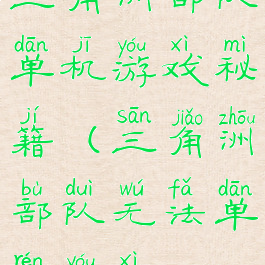 dān jī yóu xì mì
单机游戏秘
jí sān jiǎo zhōu
籍（三角洲
bù duì wú fǎ dān
部队无法单
rén yóu xì